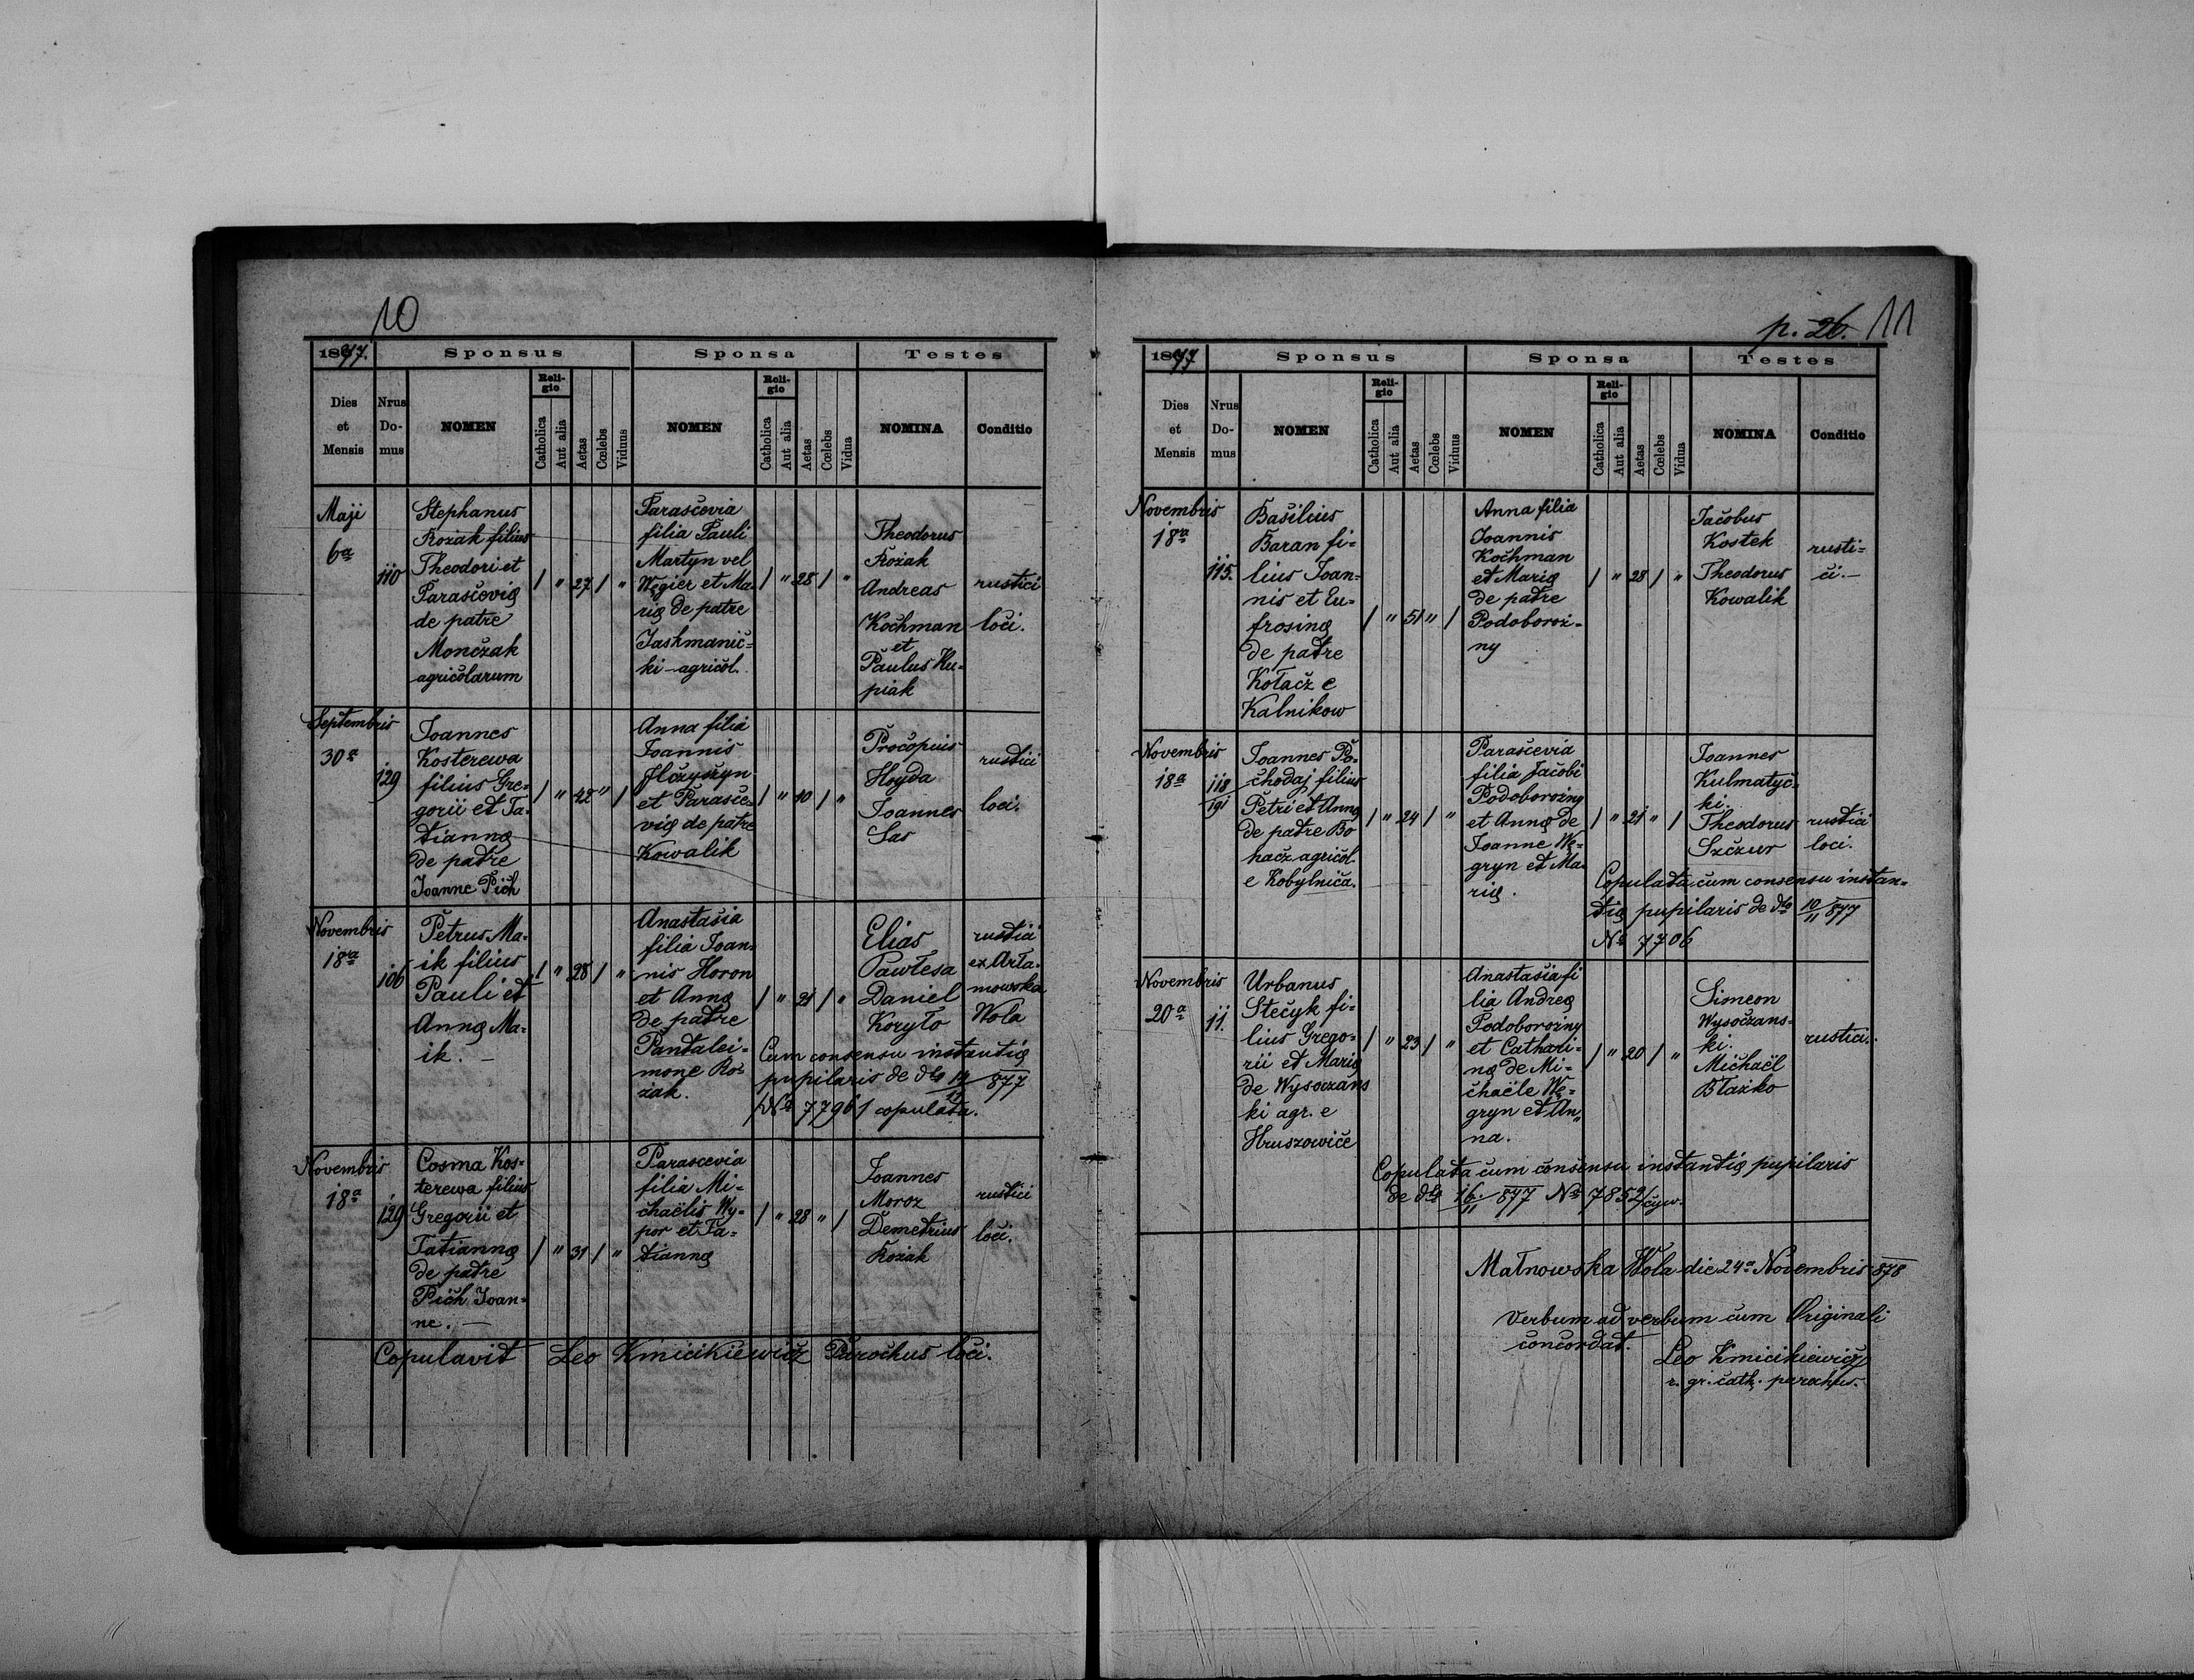 10
1877. Sponsus Sponsa Testes
Dies et Mensis
Nrus Domus
NOMEN
Religio
Catholica
Aut alia
Aetas
Cœlebs
Viduus
NOMEN
Religio
Catholica
Aut alia
Aetas
Cœlebs
Vidua
NOMINA
Conditio
Maji
6a
110
Stephanus
Rozak filius
Theodori et
Parascevię
de patre
Monczak
agricolarum
/ " 27 / "
Parascevia
filia Pauli
Martyn vel
Węgier et Ma-
rię de patre
Jashmanic=
ki - agricol.
/ " 28 / "
Theodorus
Rożak
Andreas
Kochman
et
Paulus Ku-
piak
rustici
loci.
Septembris
30a
129
Joannes
Kosterewa
filius Gre-
gorii et Ta-
tiannę
de patre
Joanne Pich
/ " 42 " /
Anna filia
Joannis
Ilczyszyn
et Parasce-
vię de patre
Kowalik
/ " 40 / "
Procopius
Hoyda
Joannes
Sas
rustici
loci.
Novembris
18a
106
Petrus Ma-
ik filius
Pauli et
Annę Ma-
ik. —
/ " 28 / "
Anastasia
filia Joan-
nis Horon
et Annę
de patre
Pantalei-
mone Ro-
żak.
/ " 21 / "
Elias
Pawłesa
Daniel
Koryto
rustici
ex Arła-
mowska
Wola
Cum consensu instantię
pupilaris de dto 14/11 877
Nr 7796 / copulata.
Novembris
18a
129
Cosma Kos-
terewa filius
Gregorii et
Tatiannę
de patre
Pich Joan-
ne. —
/ " 31 / "
Parascevia
filia Mi-
chaelis Wy-
por et Ta-
tiannę
/ " 28 " /
Joannes
Moroz
Demetrius
Rożak
rustici
loci.
Copulavit Leo Kmicikiewicz Parochus loci.
p. 26. 11
1877 Sponsus Sponsa Testes
Dies et Mensis
Nrus Domus
NOMEN
Religio
Catholica
Aut alia
Aetas
Cœlebs
Viduus
NOMEN
Religio
Catholica
Aut alia
Aetas
Cœlebs
Vidua
NOMINA
Conditio
Novembris
18a
115.
Basilius
Baran fi-
lius Joan-
nis et Eu-
frosinę
de patre
Kołacz e
Kalnikow
/ " 51 " /
Anna filia
Joannis
Kochman
et Marię
de patre
Podoboroż-
ny
/ " 28 / "
Jacobus
Kostek
Theodorus
Kowalik
rusti=
ci. —
Novembris
18a
118
191
Joannes Po-
chodaj filius
Petri et Annę
de patre Bo
hacz agricol.
e Kobylnica.
/ " 24 / "
Parascevia
filia Jacobi
Podoborożny
et Annę de
Joanne Wę-
gryn et Ma-
rię.
/ " 21 " /
Joannes
Kulmatyc-
ki.
Theodorus
Szczur
rustici
loci.
Copulata cum consensu instan-
tię pupilaris de dto 10/11 877
Nr 7706
Novembris
20a
11.
Urbanus
Stecyk fi-
lius Grego-
rii et Marię
de Wysoczans
ki agr. e
Hruszowice
/ " 23 / "
Anastasia fi
lia Andreę
Podoborożny
et Cathari-
nę de Mi-
chaële Wę-
gryn et An-
na.
/ " 20 / "
Simeon
Wysoczans-
ki.
Michaël
Błażko
rustici.
Copulata cum consensu instantię pupilaris
de dto 16./11 877 Nr 7852/cyw.
Małnowska Wola die 24a Novembris 878
Verbum ad verbum cum Originali
concordat.
Leo Kmicikiewicz
r. gr. cath. parochus.